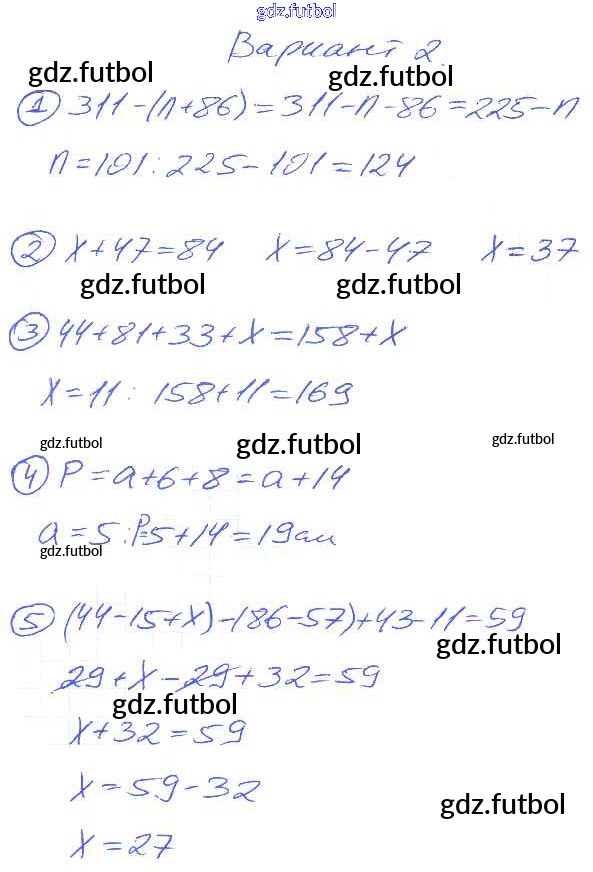 gdz.futbol
Вариант 2.
gdz.futbol gdz.futbol
① 311-(n+86)=311-n-86=225-n
n=101: 225-101=124
② x+47=84 x=84-47 x=37
gdz.futbol gdz.futbol
③ 44+81+33+x=158+x
x=11: 158+11=169
gdz.futbol gdz.futbol gdz.futbol
④ P=a+6+8=a+14
a=5: P=5+14=19см
gdz.futbol
⑤ (44-15+x)-(86-57)+43-11=59
gdz.futbol
29+x-29+32=59
gdz.futbol
x+32=59
x=59-32
gdz.futbol
x=27